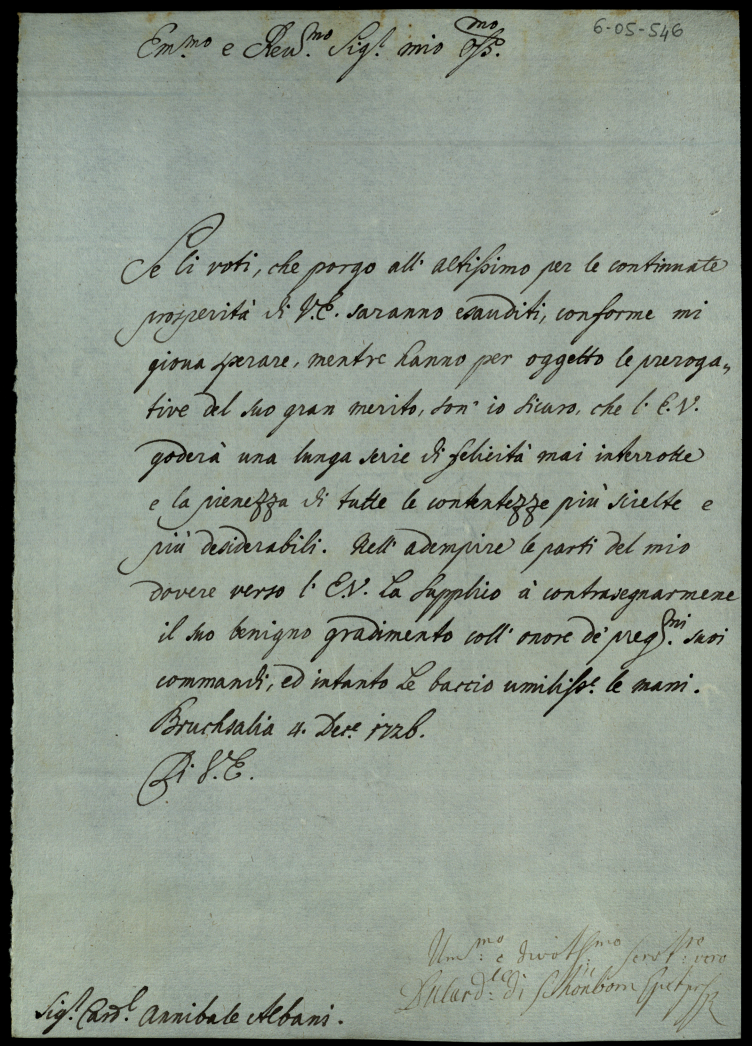 6-05-546
Em.mo e Reu.mo Sig.r mio oss.mo
Se li voti, che porgo all' altissimo per le continuate
prosperità di V.E. saranno esauditi, conforme mi
gioua sperare, mentre hanno per oggetto le preroga„
tive del suo gran merito, son' io sicuro, che l' E.V.
goderà una lunga serie di felicità mai interrotte
e la pienezza di tutte le contentezze più scielte e
più desiderabili. Nell' adempire le parti del mio
dovere verso l' E.V. la supplico à contrasegnarmene
il suo benigno gradimento coll' onore de' preg.mi suoi
commandi, ed intanto Le baccio umiliss.e le mani.
Bruchsalia 4. Dec.e 1726.
Di V.E.
Um.mo e divot.mo vero
di Schönborn
Sig.r Card.l Annibale Albani.